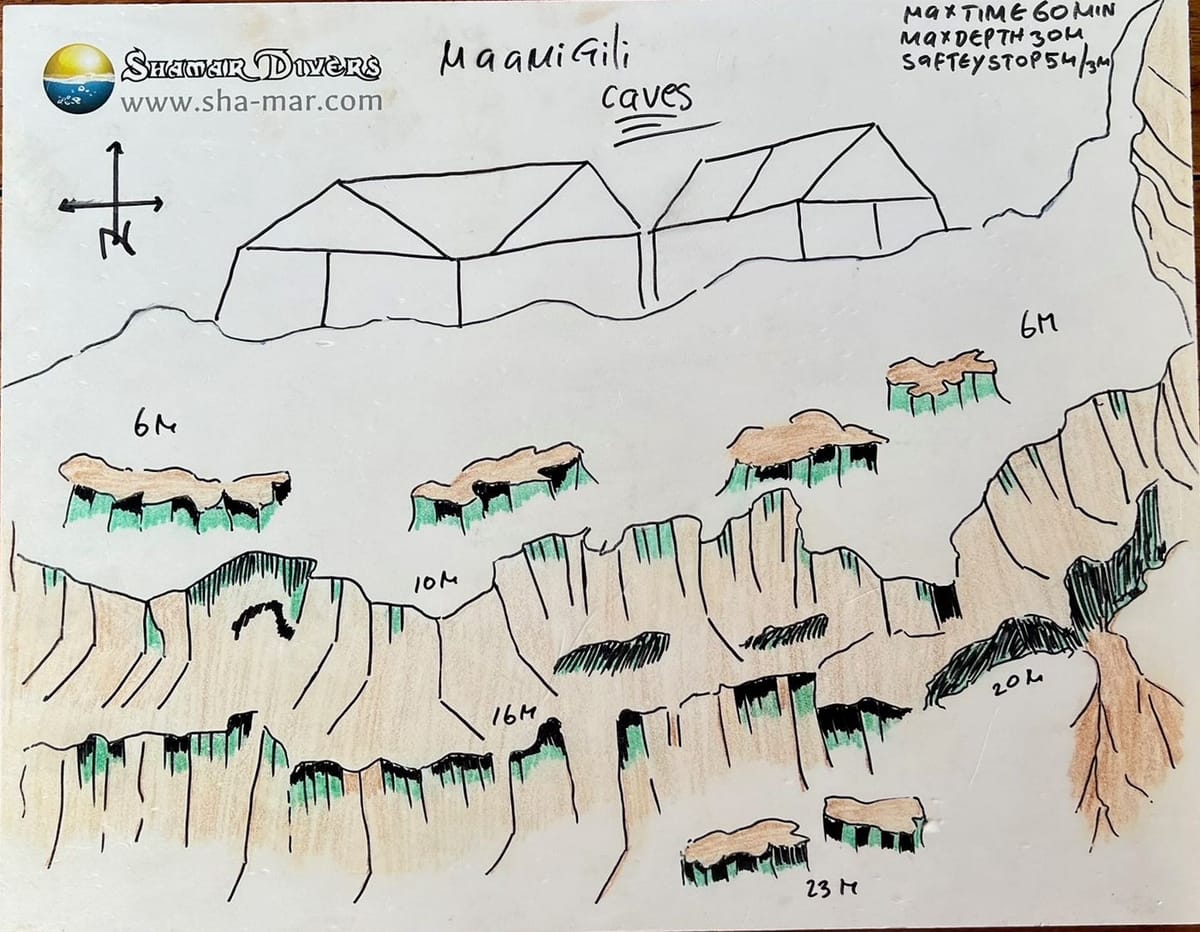 SHAMAR DIVERS
www.sha-mar.com
MAAMIGILI
caves
MAX TIME 60 MIN
MAX DEPTH 30M
SAFTEY STOP 5M/3M
N
6M
6M
10M
16M
20M
23M